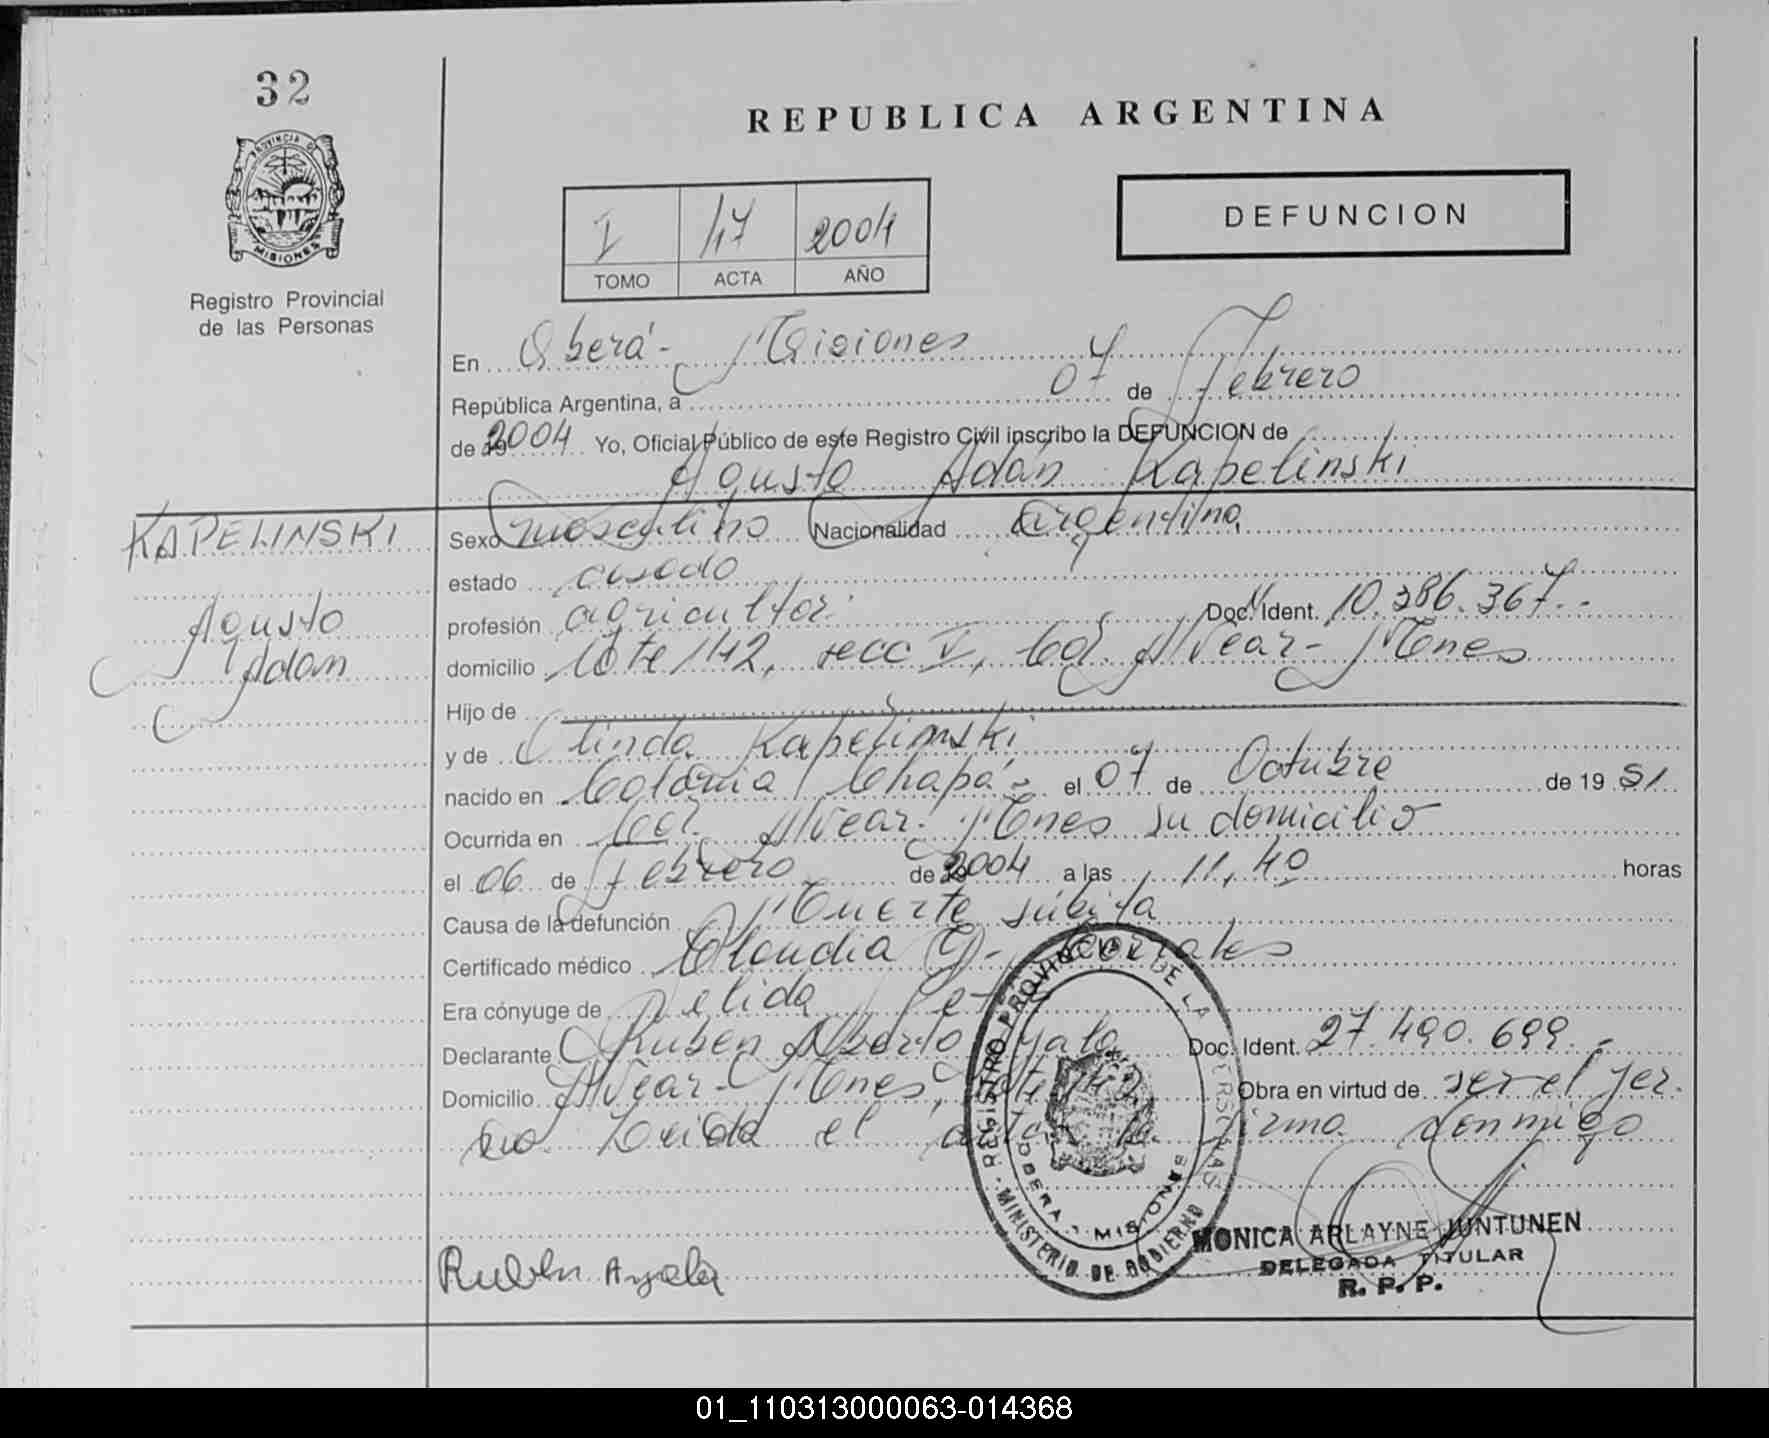 32
PROVINCIA DE
MISIONES
Registro Provincial
de las Personas
REPUBLICA ARGENTINA
I 47 2004
TOMO ACTA AÑO
DEFUNCION
En Oberá - Misiones
República Argentina, a 07 de Febrero
de 2004 Yo, Oficial Público de este Registro Civil inscribo la DEFUNCION de
Agusto Adán Kapelinski
KAPELINSKI
Agusto
Adan
Sexo masculino Nacionalidad argentina
estado casado
profesión agricultor Doc. Ident. 10.386.367.-
domicilio Lote 142, secc V, Col. Alvear - Mnes
Hijo de
y de Olinda Kapelinski
nacido en Colonia Chapá - el 07 de Octubre de 19 51
Ocurrida en Col. Alvear. Mnes su domicilio
el 06 de Febrero de 2004 a las 11,40 horas
Causa de la defunción Muerte súbita
Certificado médico Claudia G. Corrales
Era cónyuge de Nelida
Declarante Ruben Alberto Ayala Doc. Ident. 27.490.699.-
Domicilio Alvear - Mnes, Lote 142 Obra en virtud de ser el yer.
no Leida el acta la firma conmigo
REGISTRO PROVINCIAL DE LAS PERSONAS
OBERA - MISIONES
MINISTERIO DE GOBIERNO
Ruben Ayala
MONICA ARLAYNE JUNTUNEN
DELEGADA TITULAR
R. P. P.
01_110313000063-014368